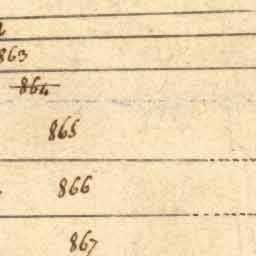 863
864
865
866
867